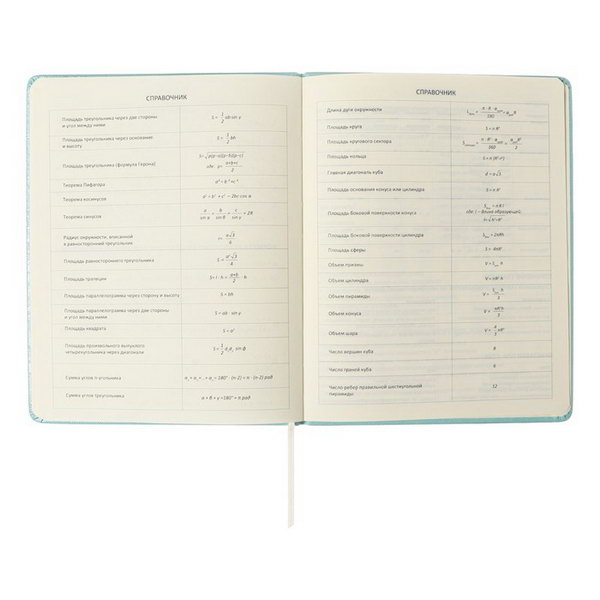 СПРАВОЧНИК
Площадь треугольника через две стороны
и угол между ними
S= 1/2 ab sin γ
Площадь треугольника через основание
и высоту
S= 1/2 bh
Площадь треугольника (формула Герона)
S=√p(p-a)(p-b)(p-c)
где p= a+b+c/2
Теорема Пифагора
a² + b² = c²
Теорема косинусов
a² = b² + c² – 2bc cos α
Теорема синусов
a/sin α = b/sin β = c/sin γ = 2R
Радиус окружности, вписанной
в равносторонний треугольник
r= a√3/6
Площадь равностороннего треугольника
S= a²√3/4
Площадь трапеции
S= l · h = a+b/2 · h
Площадь параллелограмма через сторону и высоту
S = bh
Площадь параллелограмма через две стороны
и угол между ними
S = ab · sin α
Площадь квадрата
S = a²
Площадь произвольного выпуклого
четырехугольника через диагонали
S = 1/2 d₁d₂ sin φ
Сумма углов n-угольника
Сумма углов треугольника
α + β + γ =180° = π рад
СПРАВОЧНИК
Длина дуги окружности
Площадь круга
S = π R²
Площадь кругового сектора
Площадь кольца
S= π (R²-r²)
Главная диагональ куба
d = a√3
Площадь основания конуса или цилиндра
S = π R²
Площадь боковой поверхности конуса
S бок = π R l
где l – длина образующей,
l=√h²+R²
Площадь боковой поверхности цилиндра
S бок = 2πRh
Площадь сферы
S = 4πR²
Объем призмы
V = S осн · h
Объем цилиндра
V = πR² h
Объем пирамиды
V = S осн h/3
Объем конуса
V = πR² h/3
Объем шара
V = 4/3 πR³
Число вершин куба
8
Число граней куба
6
Число ребер правильной шестиугольной
пирамиды
12